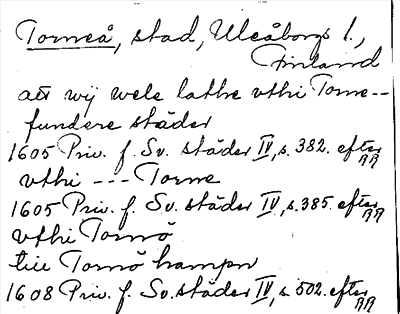 Torneå, stad, Uleåborgs l.,
Finland
att wij wele lathe vthi Torne--
fundere städer
1605 Priv. f. Sv. städer IV, s. 382. efter RR
vthi --- Torne
1605 Priv. f. Sv. städer IV, s. 385. efter RR
vthi Tornö
till Tornö hampn
1608 Priv. f. Sv. städer IV, s. 502. efter RR